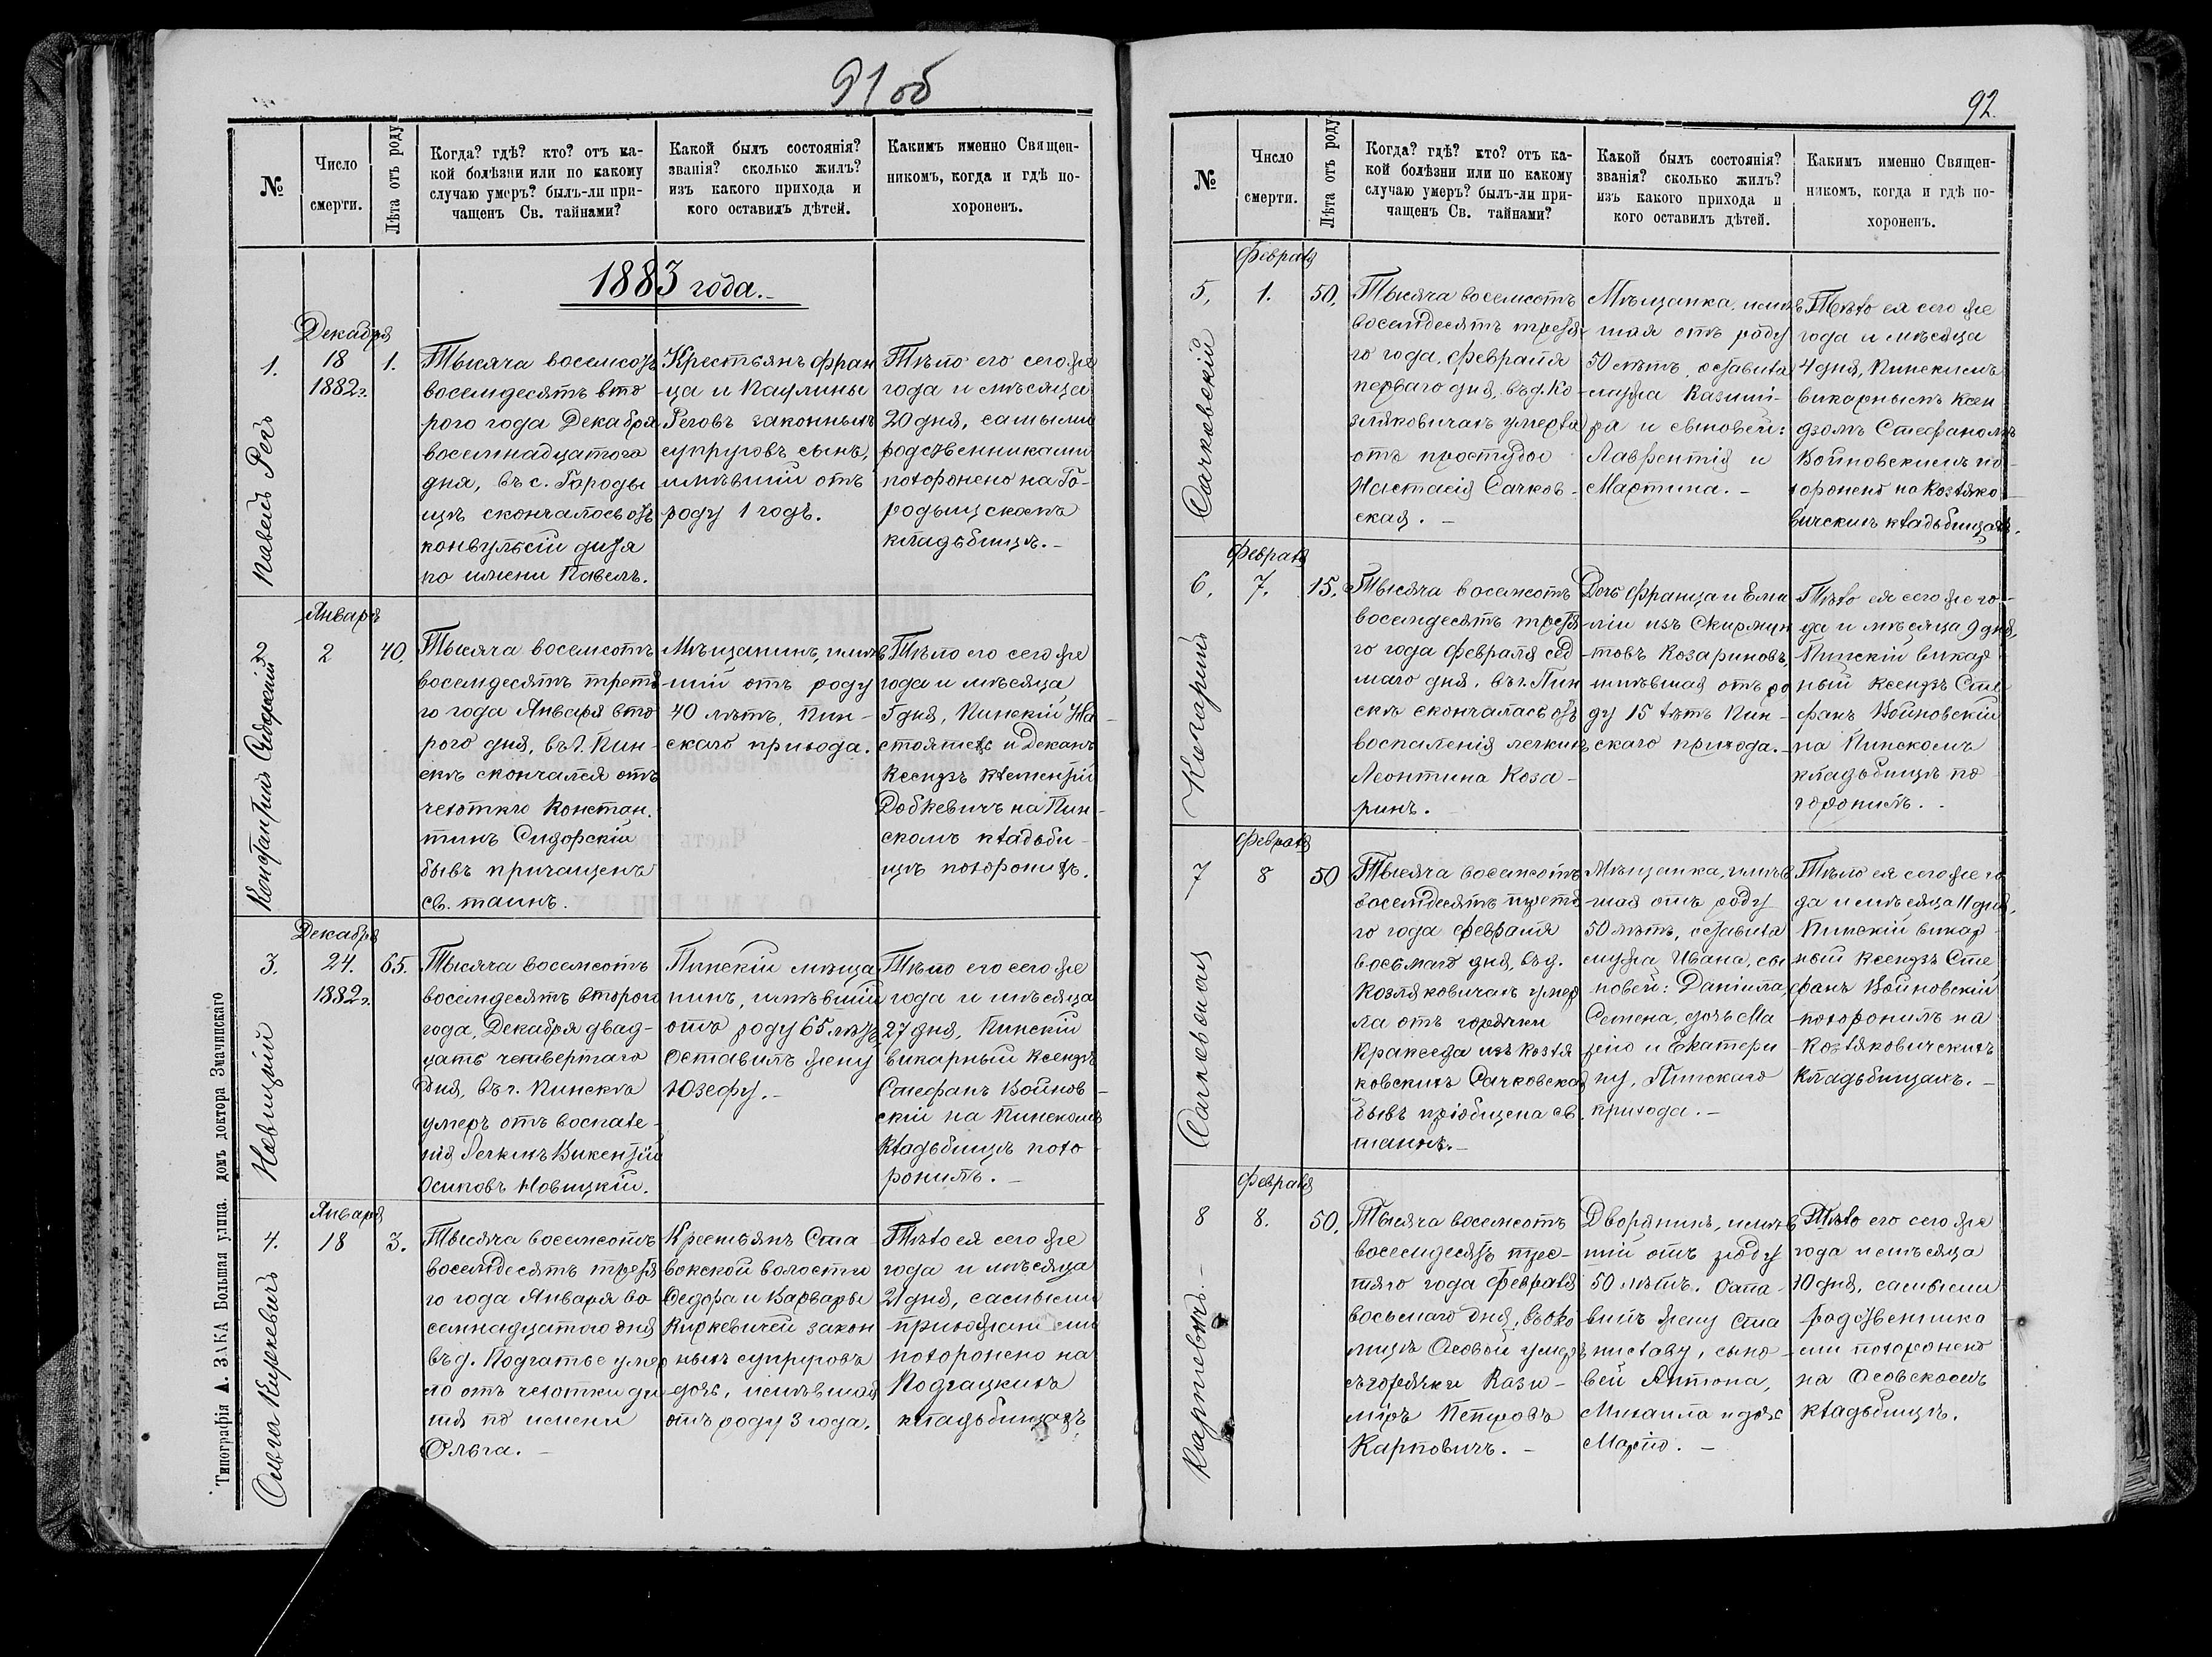 91 об
№
Число
смерти.
Лѣта отъ роду
Когда? гдѣ? кто? отъ ка-
кой болѣзни или по какому
случаю умеръ? былъ-ли при-
чащенъ Св. тайнами?
Какой былъ состоянія?
званія? сколько жилъ?
изъ какого прихода и
кого оставилъ дѣтей.
Какимъ именно Священ-
никомъ, когда и гдѣ по-
хороненъ.
1883 года.-
1.
Павелъ Регъ
Декабря
18
1882г.
1.
Тысяча восемсотъ
восемдесятъ вто
рого года Декабря
восемнадцатого
дня, въ с. Городы
щѣ скончалось отъ
конвульсіи дитя
по имени Павелъ.
Крестьянъ Фран
ца и Паулины
Реговъ законныхъ
супруговъ сынъ,
имѣвшій отъ
роду 1 годъ.
Тѣло его сего же
года и мѣсяца
20 дня, самыми
родственниками
похоронено на Го-
родыщскомъ
кладбищѣ.-
2
Константинъ Сидорскій
Января
2
40.
Тысяча восемсотъ
восемдесятъ третья
го года Января вто
рого дня, въ г. Пин-
скѣ скончался отъ
чахотки Констан.
тинъ Сидорскій
бывъ причащенъ
св. таинъ.
Мѣщанинъ, имѣв
шій отъ роду
40 лѣтъ, Пин-
скаго прихода.
Тѣло его сего же
года и мѣсяца
5 дня, Пинскій На-
стоятель и Деканъ
Ксендзъ Клементій
Добкевичъ на Пин-
скомъ кладби-
щѣ похоронилъ.
3.
Новицкій
Декабря
24.
1882г.
65.
Тысяча восемсотъ
восемдесятъ второго
года, Декабря двад-
цать четвертаго
Дня, въ г. Пинскѣ
умеръ отъ воспале-
нія легкихъ Викентій
Осиповъ Новицкій.
Пинскій мѣща
нинъ, имѣвшій
отъ роду 65 лѣтъ,
Оставилъ жену
Юзефу.-
Тѣло его сего же
года и мѣсяца
27 дня, Пинскій
викарный Ксендзъ
Стефанъ Войнов-
скій на Пинскомъ
кладбищѣ похо
ронилъ.-
4.
Ольга Киркевичъ
Января
18
3.
Тысяча восемсотъ
восемдесятъ третья
го года Января во
семнадцатого дня
въ д. Подгатье умер
ло отъ чахотки ди
тя по имени
Ольга.-
Крестьянъ Ста
вокской волости
Федора и Варвары
Киркевичей закон
ныхъ супруговъ
дочь, имѣвшая
отъ роду 3 года.
Тѣло ея сего же
года и мѣсяца
21 дня, самыми
прихожанами
похоронено на
Подгацкихъ
кладбищахъ.
Типографія А. ЗАКА Большая улица. домъ доктора Змачинскаго
92.
№
Число
смерти.
Лѣта отъ роду
Когда? гдѣ? кто? отъ ка-
кой болѣзни или по какому
случаю умеръ? былъ-ли при-
чащенъ Св. тайнами?
Какой былъ состоянія?
званія? сколько жилъ?
изъ какого прихода и
кого оставилъ дѣтей.
Какимъ именно Священ-
никомъ, когда и гдѣ по-
хороненъ.
5,
Сачковскій
Февраля
1.
50,
Тысяча восемсотъ
восемдесятъ третья
го года, Февраля
перваго дня, въ д. Ко-
зляковичахъ умерла
отъ простуды
Настасія Сачков-
ская.-
Мѣщанка, имѣв
шая отъ роду
50 лѣтъ, оставила
мужа Казимі-
ра и сыновей:
Лаврентія и
Мартина.-
Тѣло ея сего же
года и мѣсяца
4 дня, Пинскимъ
викарнымъ Ксен
дзомъ Стефаномъ
Войновскимъ по-
хоронено на Козляко-
вичскихъ кладбищахъ.
6.
Февраля
7.
15.
Тысяча восемсотъ
восемдесятъ третья
го года Февраля сед
маго дня, въ г. Пин
скѣ скончалась отъ
воспаленія легкихъ
Леонтина Коза-
ринъ.
Дочь Франца и Еми
ліи изъ Скирмун
товъ Козариновъ,
имѣвшая отъ ро
ду 15 лѣтъ Пин-
скаго прихода.-
Тѣло ея сего же го-
да и мѣсяца 9 дня,
Пинскій викар
ный Ксендзъ Сте
фанъ Войновскій
на Пинскомъ
кладбищѣ по
хоронилъ.
7
Сачковская
Февраля
8
50
Тысяча восемсотъ
восемдесятъ третья
го года Февраля
восьмаго дня, въ д.
Козляковичахъ умер
ла отъ горячки
Кракседа изъ Козля
ковскихъ Сачковская
бывъ пріобщена св.
таинъ.-
Мѣщанка, имѣв
шая отъ роду
50 лѣтъ, оставила
мужа Ивана, сы
новей: Даніила,
Семена, дочь Ма
рію и Екатери
ну, Пинскаго
прихода.-
Тѣло ея сего же го
да и мѣсяца 11 дня,
Пинскій викар
ный Ксендзъ Сте
фанъ Войновскій
похоронилъ на
Козляковичскихъ
кладбищахъ.-
8
Карповичъ.-
Февраля
8.
50.
Тысяча восемсотъ
восемдесятъ трес-
тяго года Февраля
восьмаго дня, въ око
лицѣ Осовой умеръ
съ горячки Кази-
міръ Петровъ
Карповичъ.-
Дворянинъ, имѣв
шій отъ роду
50 лѣтъ. Оста-
вилъ жену Ста
ниславу, сыно-
вей Антона,
Михаила и дочь
Марію.-
Тѣло его сего же
года и мѣсяца
10 дня, самыми
родственника
ми похоронено
на Осовскомъ
кладбищѣ.